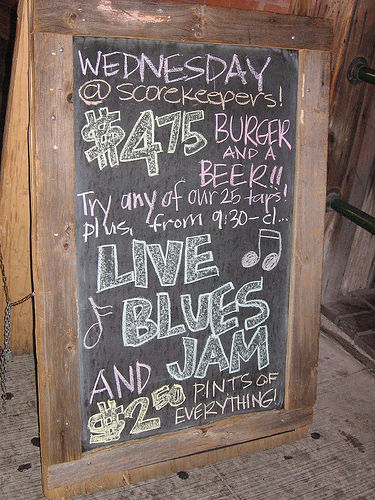 WEDNESDAY
@ Scorekeepers!
$4 75 BURGER
AND A
BEER!!
Try any of our 25 taps!
plus, from 9:30-cl...
LIVE
BLUES
JAM
AND
$2 50 PINTS OF
EVERYTHING!